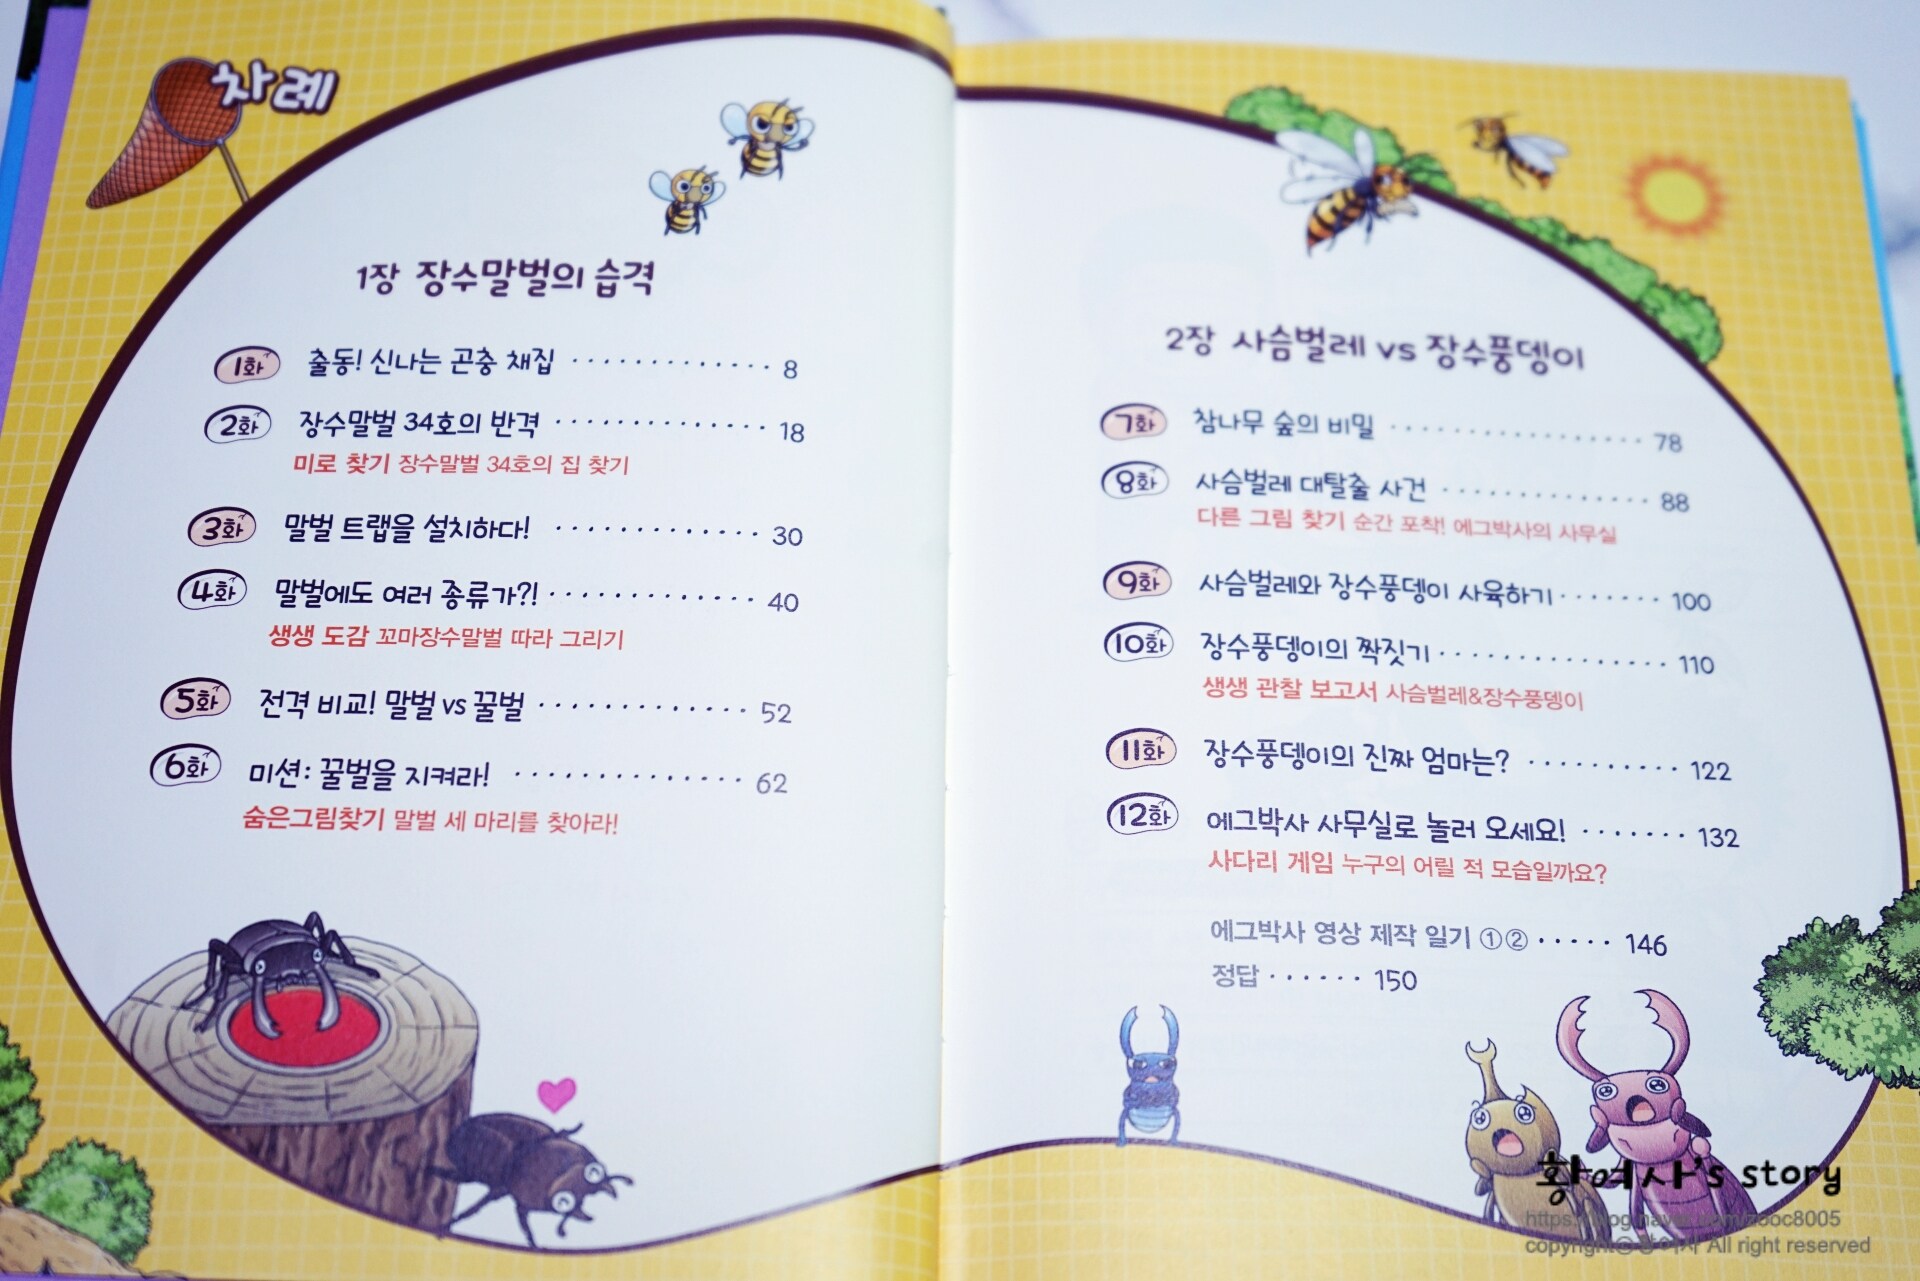 차례
1장 장수말벌의 습격
1화 출동! 신나는 곤충 채집 8
2화 장수말벌 34호의 반격 18
미로 찾기 장수말벌 34호의 집 찾기
3화 말벌 트랩을 설치하다! 30
4화 말벌에도 여러 종류가?! 40
생생 도감 꼬마장수말벌 따라 그리기
5화 전격 비교! 말벌 vs 꿀벌 52
6화 미션: 꿀벌을 지켜라! 62
숨은그림찾기 말벌 세 마리를 찾아라!
2장 사슴벌레 vs 장수풍뎅이
7화 참나무 숲의 비밀 78
8화 사슴벌레 대탈출 사건 88
다른 그림 찾기 순간 포착! 에그박사의 사무실
9화 사슴벌레와 장수풍뎅이 사육하기 100
10화 장수풍뎅이의 짝짓기 110
생생 관찰 보고서 사슴벌레&장수풍뎅이
11화 장수풍뎅이의 진짜 엄마는? 122
12화 에그박사 사무실로 놀러 오세요! 132
사다리 게임 누구의 어릴 적 모습일까요?
에그박사 영상 제작 일기 ①② 146
정답 150
황여사's story
copyright© All right reserved